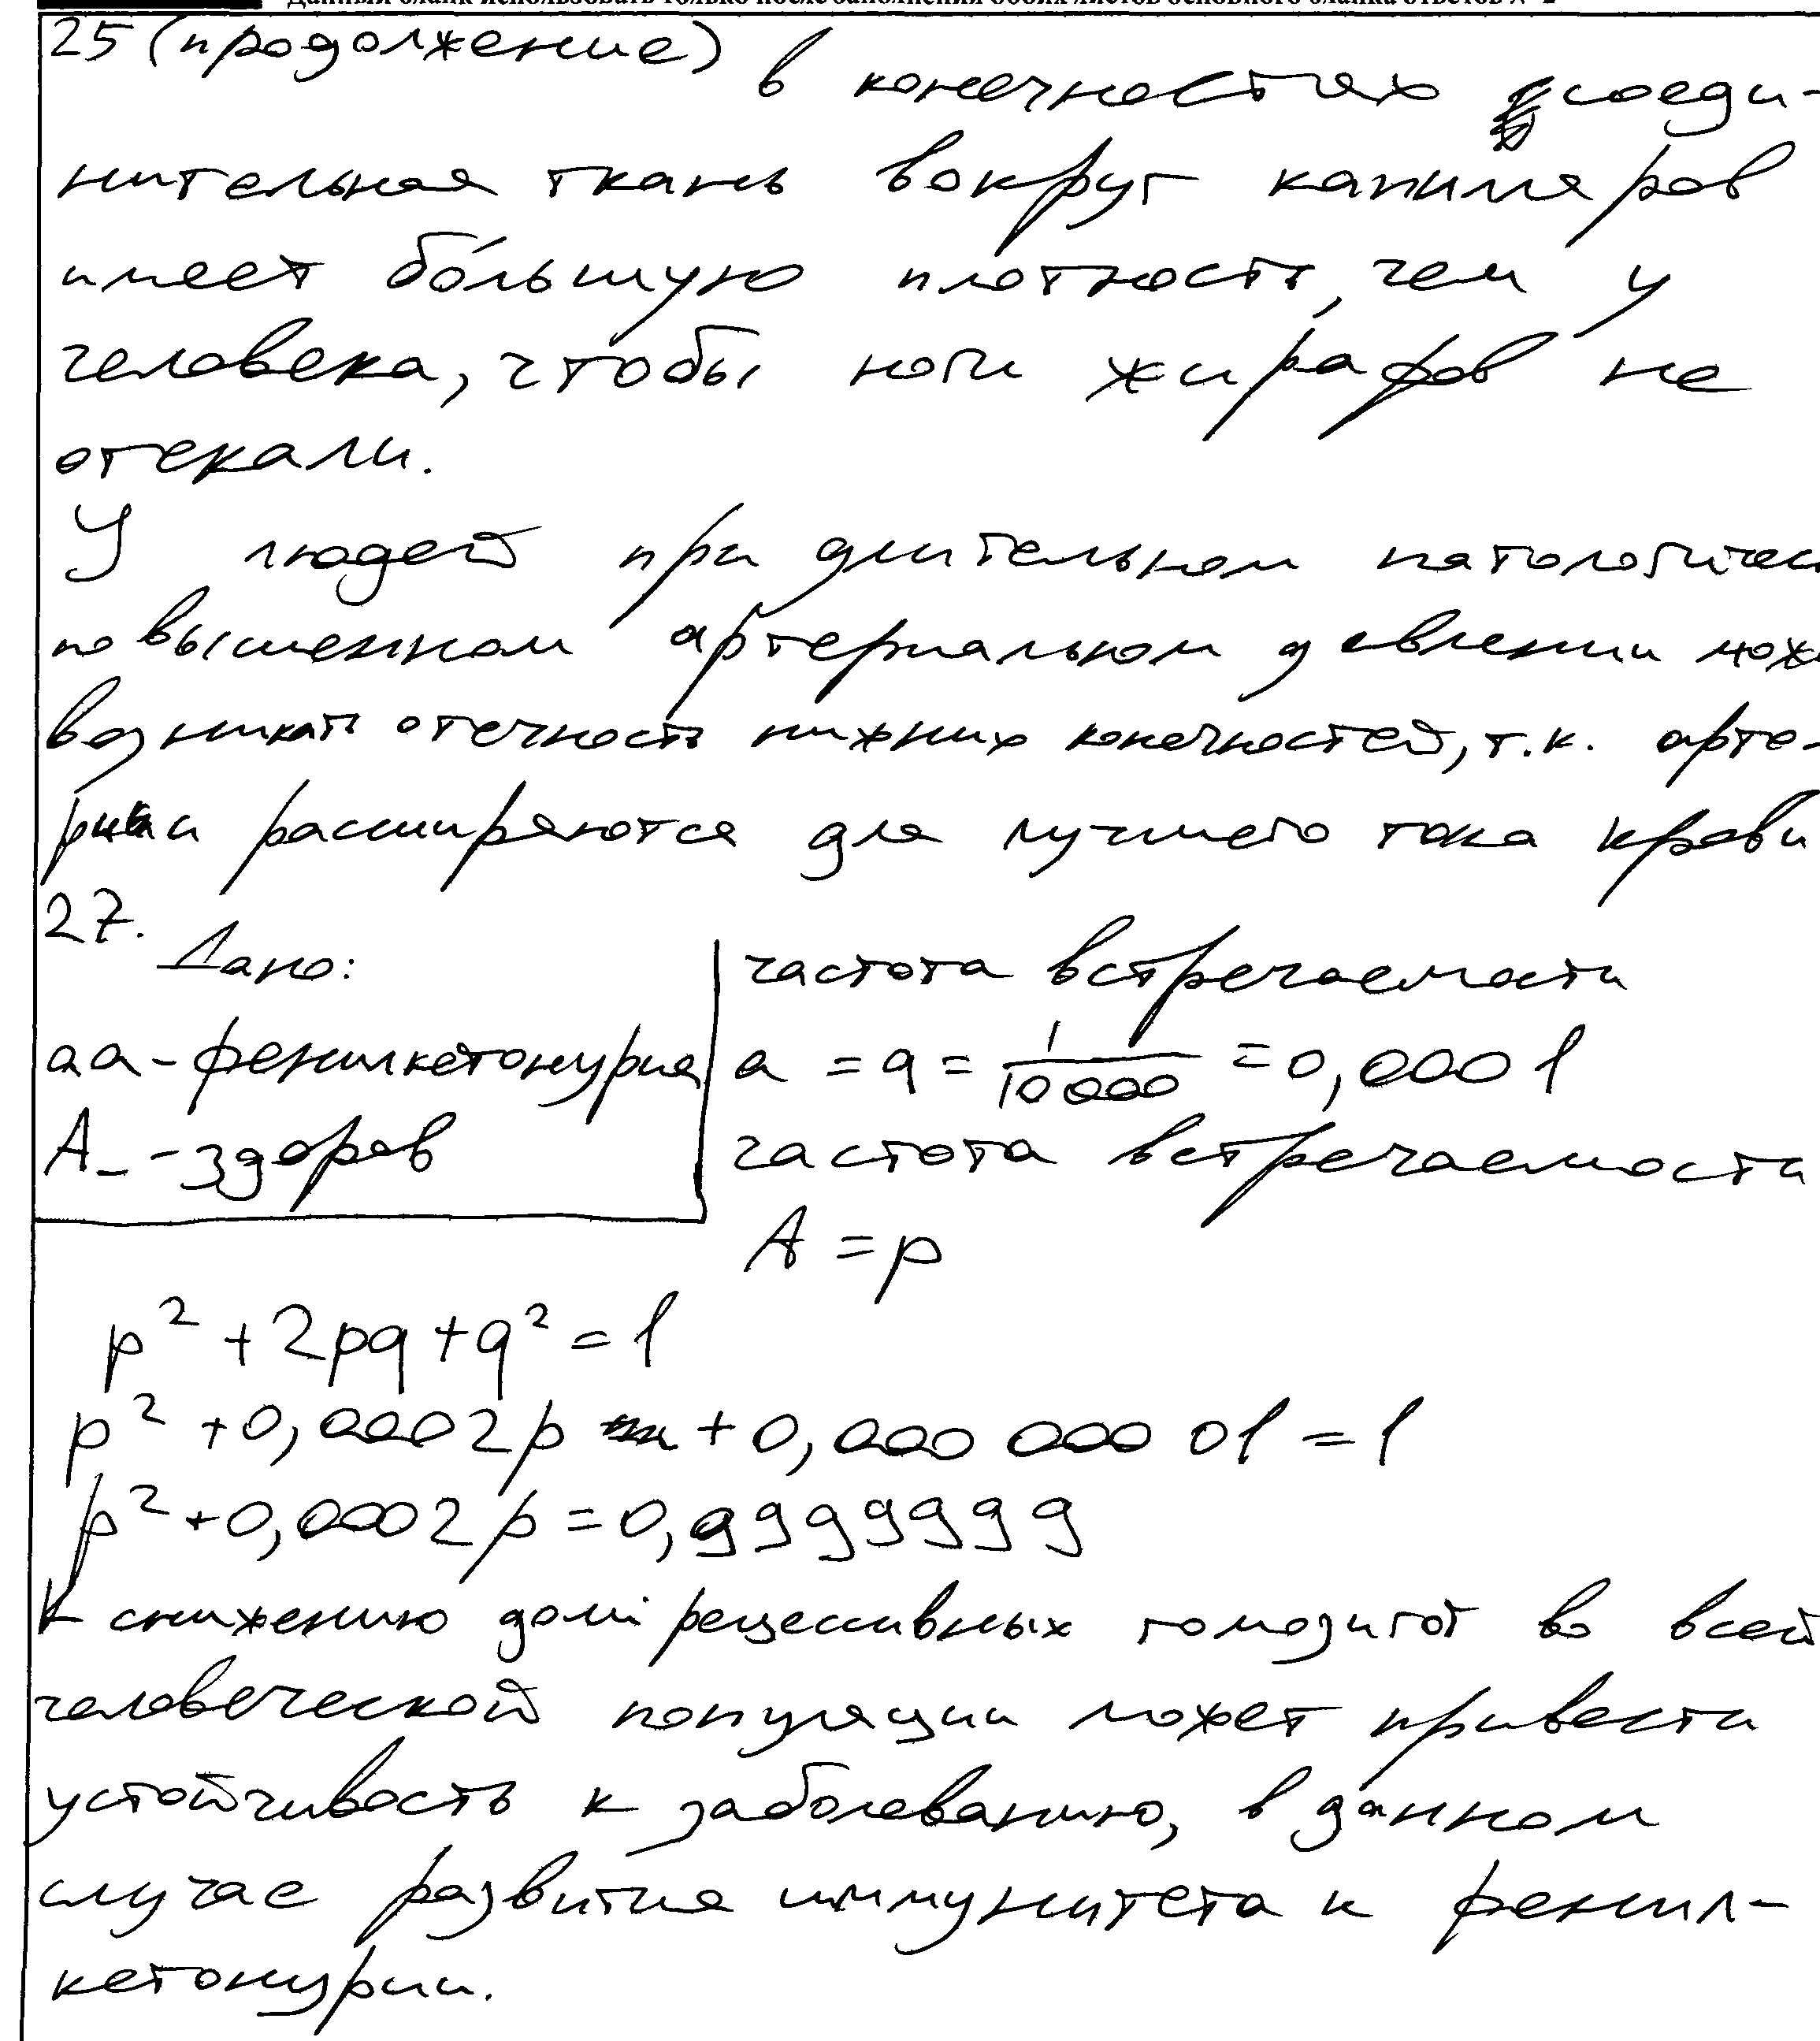 Данный бланк использовать только после заполнения обоих листов основного бланка ответов № 2
25 (продолжение) в конечностях соеди-
нительная ткань вокруг капиляров
имеет бо́льшую плотность, чем у
человека, чтобы ноги жирафов не
отекали.
У людей при длительном патологичес
повышенном артериальном давлении мож
возникать отечность нижних конечностей, т.к. арте-
рии расширяются для лучшего тока крови
27.
Дано:
аа - фенилкетонурия
А_ - здоров
частота встречаемости
a = q = 1/10000 = 0,0001
частота встречаемости
A = p
p² + 2pq + q² = 1
p² + 0,0002p + 0,00000001 = 1
p² + 0,0002p = 0,9999999
К снижению доли рецессивных гомозигот во всей
человеческой популяции может привести
устойчивость к заболеванию, в данном
случае развития иммунитета к фенил-
кетонурии.